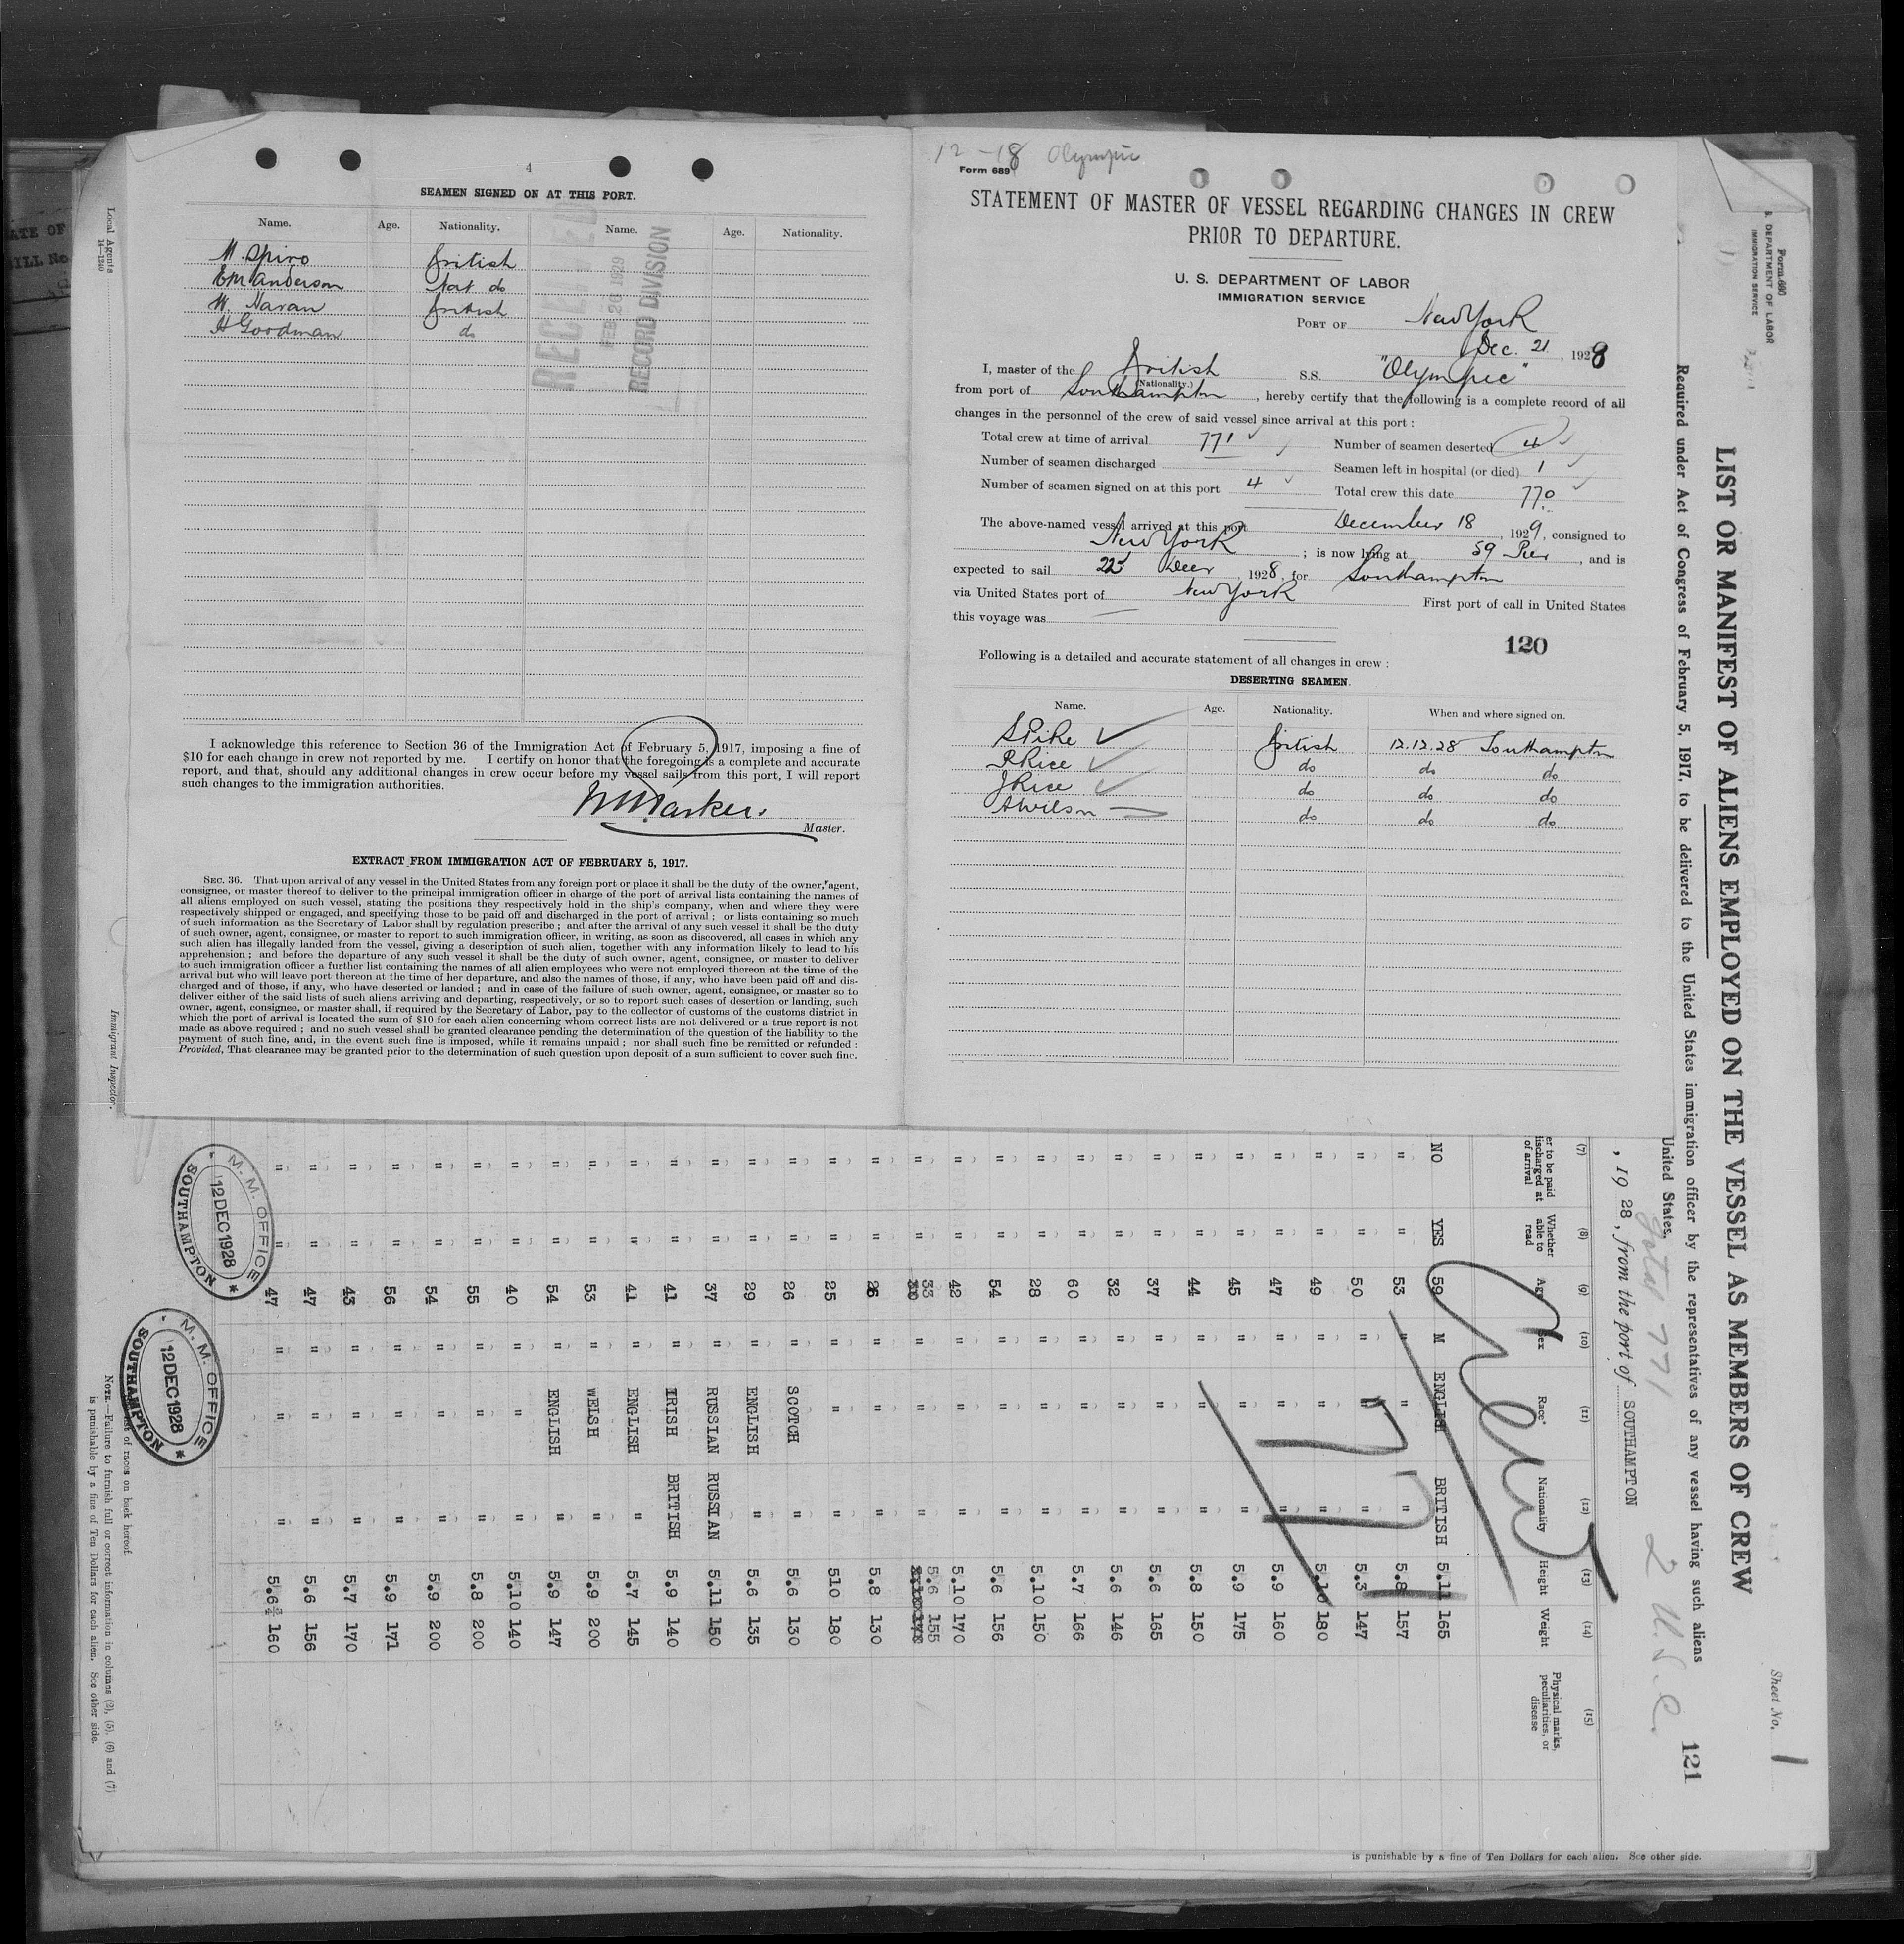 4
SEAMEN SIGNED ON AT THIS PORT.
Name. Age. Nationality. Name. Age. Nationality.
M. Spiro British
EM Anderson Not do
W. British
H Goodman do
RECEIVED
FEB 20 1929
RECORD DIVISION
I acknowledge this reference to Section 36 of the Immigration Act of February 5, 1917, imposing a fine of
$10 for each change in crew not reported by me. I certify on honor that the foregoing is a complete and accurate
report, and that, should any additional changes in crew occur before my vessel sails from this port, I will report
such changes to the immigration authorities.
Parker.
Master.
EXTRACT FROM IMMIGRATION ACT OF FEBRUARY 5, 1917.
SEC. 36. That upon arrival of any vessel in the United States from any foreign port or place it shall be the duty of the owner, agent,
consignee, or master thereof to deliver to the principal immigration officer in charge of the port of arrival lists containing the names of
all aliens employed on such vessel, stating the positions they respectively hold in the ship's company, when and where they were
respectively shipped or engaged, and specifying those to be paid off and discharged in the port of arrival ; or lists containing so much
of such information as the Secretary of Labor shall by regulation prescribe ; and after the arrival of any such vessel it shall be the duty
of such owner, agent, consignee, or master to report to such immigration officer, in writing, as soon as discovered, all cases in which any
such alien has illegally landed from the vessel, giving a description of such alien, together with any information likely to lead to his
apprehension ; and before the departure of any such vessel it shall be the duty of such owner, agent, consignee, or master to deliver
to such immigration officer a further list containing the names of all alien employees who were not employed thereon at the time of the
arrival but who will leave port thereon at the time of her departure, and also the names of those, if any, who have been paid off and dis-
charged and of those, if any, who have deserted or landed ; and in case of the failure of such owner, agent, consignee, or master so to
deliver either of the said lists of such aliens arriving and departing, respectively, or so to report such cases of desertion or landing, such
owner, agent, consignee, or master shall, if required by the Secretary of Labor, pay to the collector of customs of the customs district in
which the port of arrival is located the sum of $10 for each alien concerning whom correct lists are not delivered or a true report is not
made as above required ; and no such vessel shall be granted clearance pending the determination of the question of the liability to the
payment of such fine, and, in the event such fine is imposed, while it remains unpaid ; nor shall such fine be remitted or refunded :
Provided, That clearance may be granted prior to the determination of such question upon deposit of a sum sufficient to cover such fine.
12-18 Olympic
Form 689
STATEMENT OF MASTER OF VESSEL REGARDING CHANGES IN CREW
PRIOR TO DEPARTURE.
U. S. DEPARTMENT OF LABOR
IMMIGRATION SERVICE
PORT OF New York
Dec. 21, 1928
I, master of the British S.S. "Olympic"
(Nationality.)
from port of Southampton, hereby certify that the following is a complete record of all
changes in the personnel of the crew of said vessel since arrival at this port :
Total crew at time of arrival 771 Number of seamen deserted 4
Number of seamen discharged Seamen left in hospital (or died) 1
Number of seamen signed on at this port 4 Total crew this date 770
The above-named vessel arrived at this port December 18, 1929, consigned to
New York ; is now lying at 59 Pier, and is
expected to sail 22 Decr 1928, for Southampton
via United States port of New York First port of call in United States
this voyage was
120
Following is a detailed and accurate statement of all changes in crew :
DESERTING SEAMEN.
Name. Age. Nationality. When and where signed on.
S Pike British 12.12.28 Southampton
R Rice do do do
J Rice do do do
A Wilson do do do
Local Agents
14—1240
Immigrant Inspector.
Form 680
U. S. DEPARTMENT OF LABOR
IMMIGRATION SERVICE
Sheet No. 1
LIST OR MANIFEST OF ALIENS EMPLOYED ON THE VESSEL AS MEMBERS OF CREW
Required under Act of Congress of February 5, 1917, to be delivered to the United States immigration officer by the representatives of any vessel having such aliens
United States,
121
Total 771 2 U.S.C.
, 1928, from the port of SOUTHAMPTON
(7) (8) (9) (10) (11) (12) (13) (14) (15)
er to be paid
discharged at
of arrival
Whether
able to
read
Age
Sex
Race*
Nationality
Height
Weight
Physical marks,
peculiarities, or
disease
Crew
771
NO YES 59 M ENGLISH BRITISH 5.11 165
" " 53 " " " 5.8 157
" " 50 " " " 5.3 147
" " 49 " " " 5.10 180
" " 47 " " " 5.9 160
" " 45 " " " 5.9 175
" " 44 " " " 5.8 150
" " 37 " " " 5.6 165
" " 32 " " " 5.6 146
" " 60 " " " 5.7 166
" " 28 " " " 5.10 150
" " 54 " " " 5.6 156
" " 42 " " " 5.10 170
" " 33 " " " 5.6 155
" " 26 " " " 5.8 130
" " 25 " " " 510 180
" " 26 " SCOTCH " 5.6 130
" " 29 " ENGLISH " 5.6 135
" " 37 " RUSSIAN RUSSIAN 5.11 150
" " 41 " IRISH BRITISH 5.9 140
" " 41 " ENGLISH " 5.7 145
" " 53 " WELSH " 5.9 200
" " 54 " ENGLISH " 5.9 147
" " 40 " " " 5.10 140
" " 55 " " " 5.8 200
" " 54 " " " 5.9 200
" " 56 " " " 5.9 171
" " 43 " " " 5.7 170
" " 47 " " " 5.6 156
" " 47 " " " 5.6¾ 160
M. M. OFFICE
12 DEC 1928
SOUTHAMPTON
M. M. OFFICE
12 DEC 1928
SOUTHAMPTON
of races on back hereof.
NOTE.—Failure to furnish full or correct information in columns (2), (5), (6) and (7)
is punishable by a fine of Ten Dollars for each alien. See other side.
is punishable by a fine of Ten Dollars for each alien. See other side.